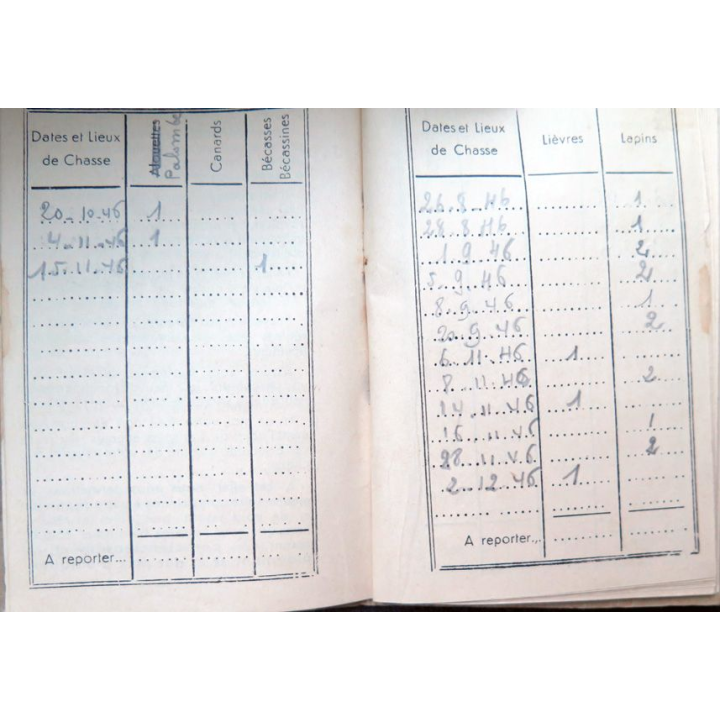 Dates et Lieux de Chasse Alouettes Palombe Canards Bécasses Bécassines
20.10.46 1
4.11.46 1
15.11.46 1
A reporter...
Dates et Lieux de Chasse Lièvres Lapins
26.8.46 1
28.8.46 1
1.9.46 2
5.9.46 2
8.9.46 1
20.9.46 2
6.11.46 1
8.11.46 2
14.11.46 1
16.11.46 1
28.11.46 2
2.12.46 1
A reporter...